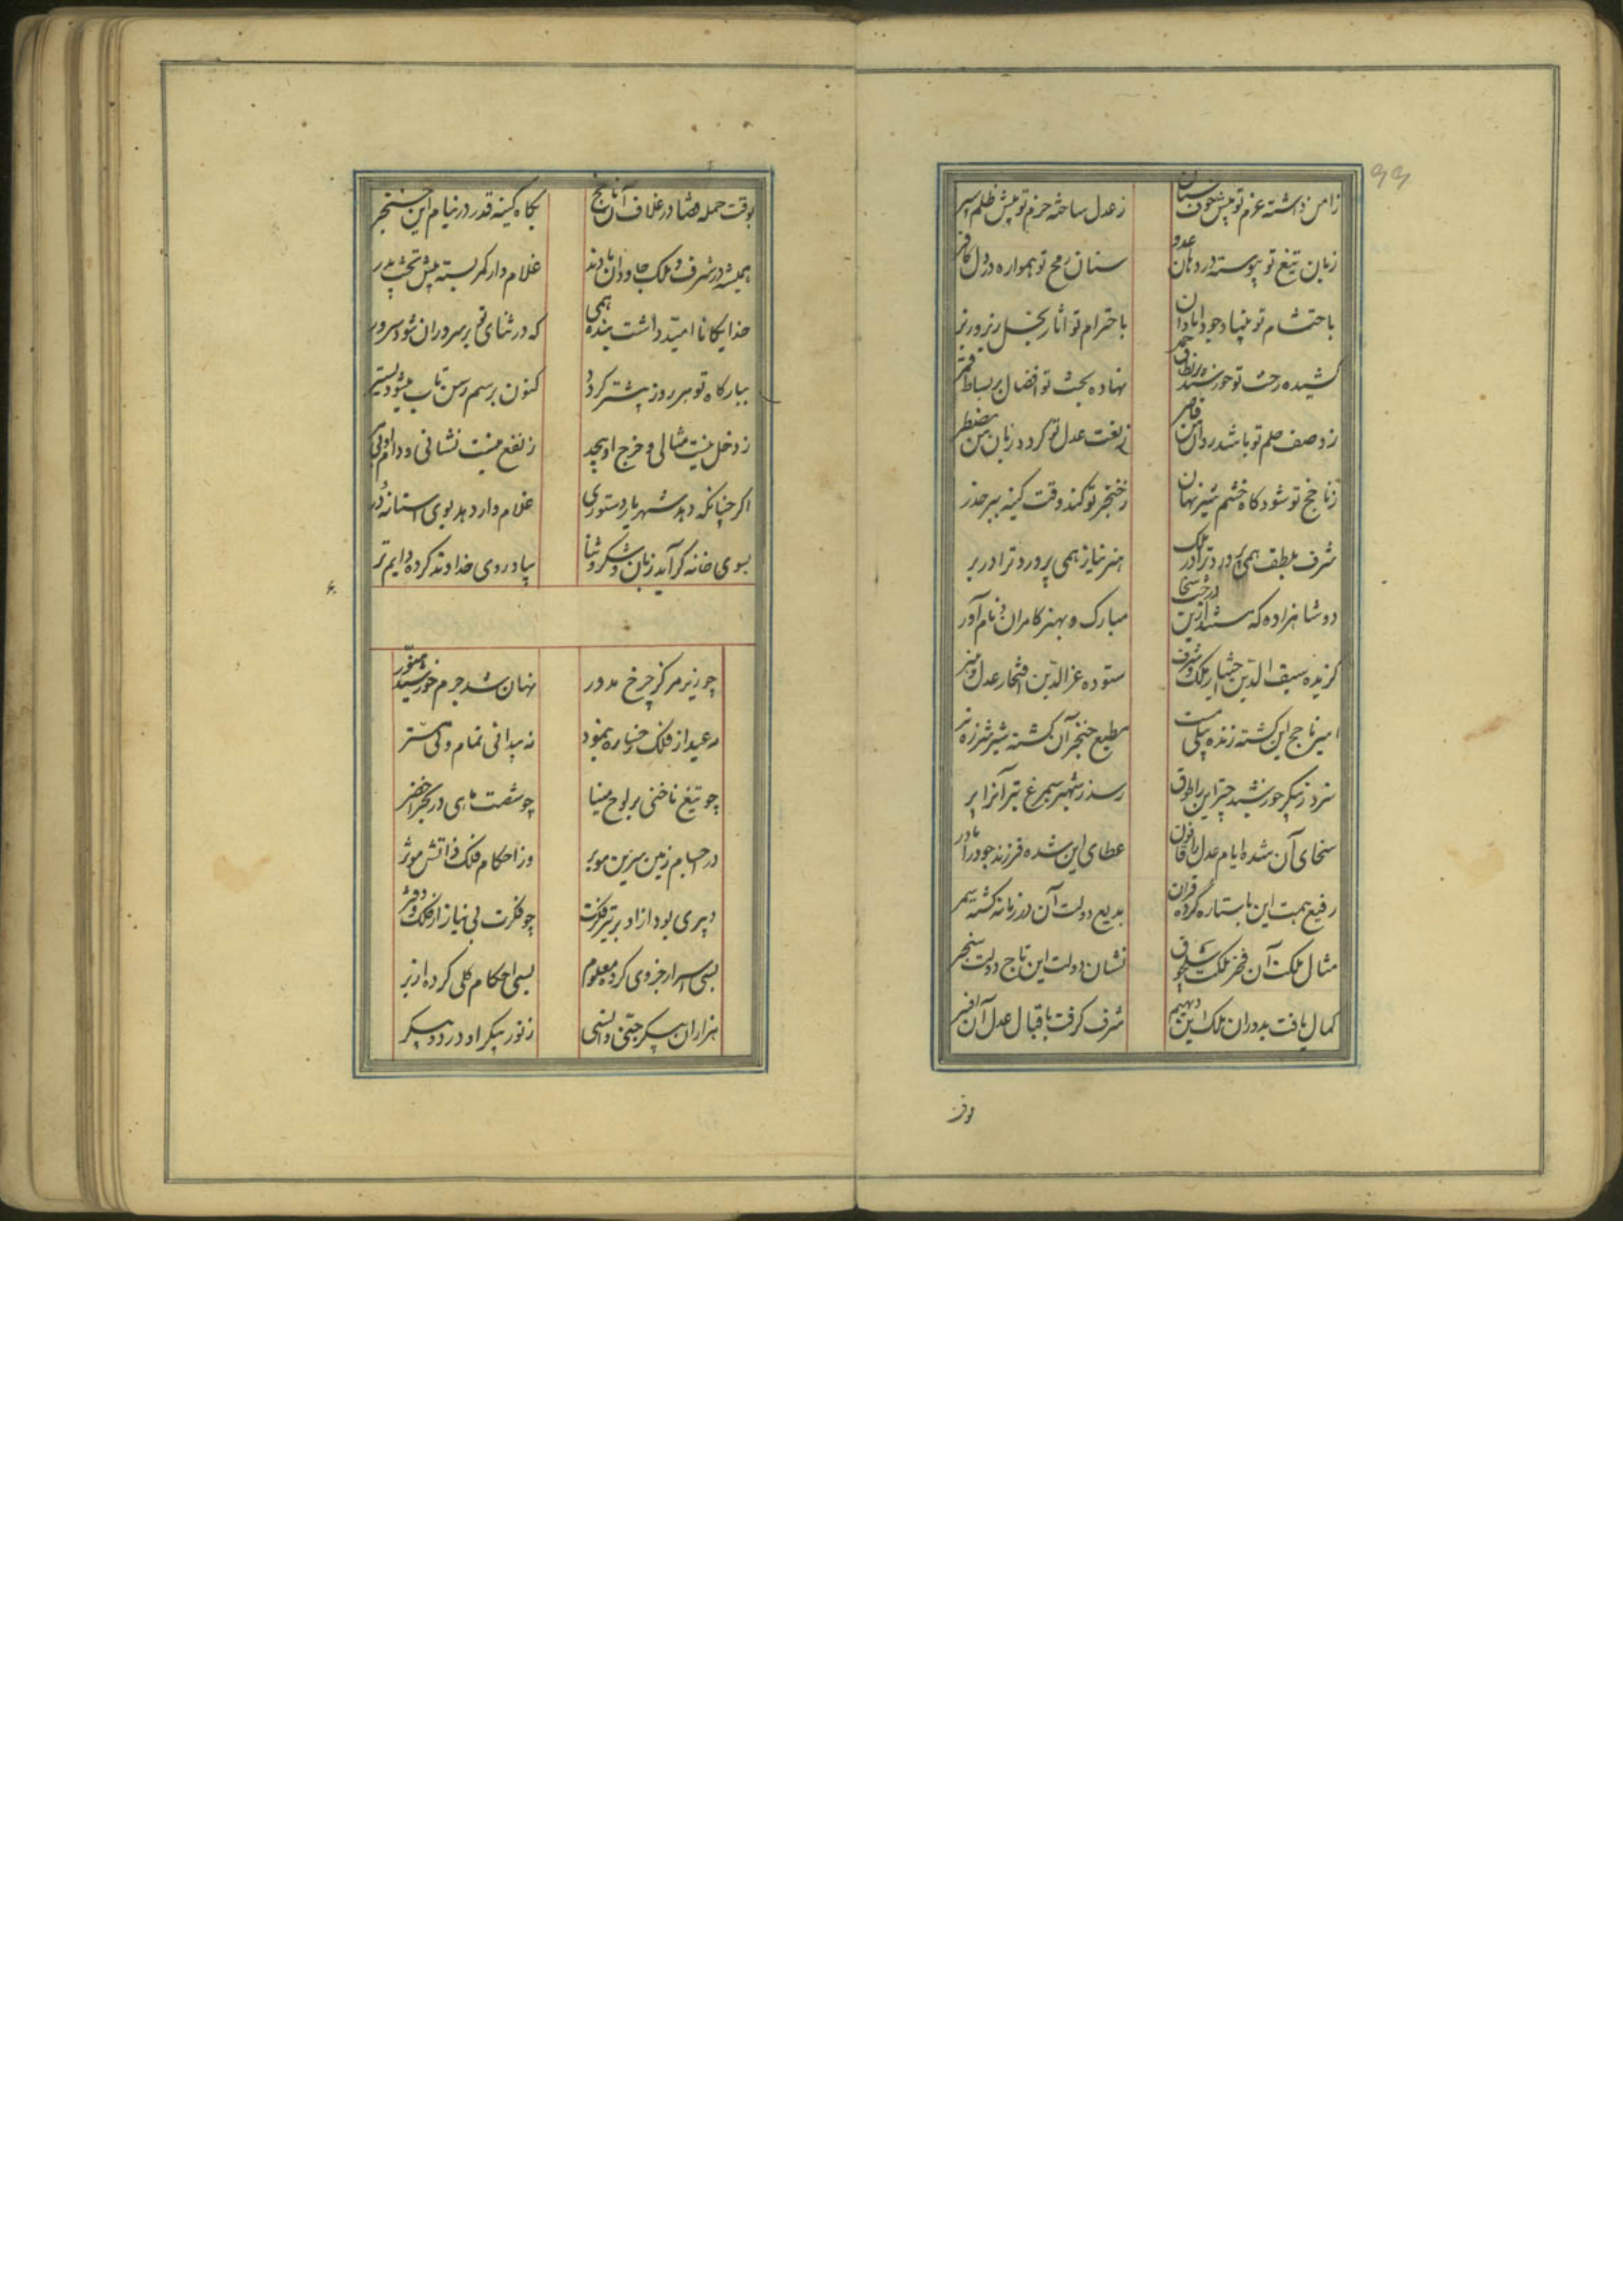 ۹۹
ز امن داشته عزم تو پیش خوف سنان
ز عدل ساخته حزم تو پیش ظلم سپر
زبان تیغ تو پیوسته در دهان عدو
سنان رمح تو همواره در دل کافر
باحتشام تو بنیاد جود آبادان
باحترام تو آثار بخل زیر و زبر
کشیده رخت تو خورشید بر نطاق
نهاده بخت تو افضال بر بساط
ز وصف حلم تو باشد روان من قاصر
ز نعت عدل تو گردد زبان من مضطر
ز ناچخ تو شود گاه خشم شیر نهان
ز خنجر تو کند وقت کینه ببر حذر
شرف بلطف همی پرورد ترا در ملک
هنر بناز همی پرورد ترا در بر
دو شاهزاده که هستند ازین درخت سخا
مبارک و بهنر کامران و نام آور
گزیده سیف الدین اختیار ملک و شرف
ستوده عز الدین افتخار عدل و هنر
اسیر ناچج این گشته زنده پیلی مست
مطیع خنجر آن گشته شیر شرزه نر
سزد ز پیکر خورشید چتر این را طوق
رسد ز شهپر سیمرغ تیر آنرا پر
سخای آن شده ایام عدل را قانون
عطای این شده فرزند جود را مادر
رفیع همت این با ستاره کرده قران
بدیع دولت آن در زمانه گشته سمر
مثال ملکت آن فخر ملکت سلجوق
نشان دولت این تاج دولت سنجر
کمال یافت بدوران ملک این دیهیم
شرف گرفت باقبال عدل آن افسر
بوقت
بوقت حمله قضا در غلاف آن ناچخ
بگاه کینه قدر در نیام این خنجر
همیشه در شرف و ملک جاودان بادند
غلام وار کمر بسته پیش تخت پدر
خدایگانا امید داشت بنده همی
که در ثنای تو بر سروران شود سرور
ببارگاه تو هر روز پیشتر گردد
کنون برسم رسن تاب میشود پستر
ز دخل نیست مثالی و خرج او بیحد
ز نفع نیست نشانی و وام او بی
اگر چنانکه دهد شهریار دستوری
غلام وار دهد بوی آستانه در
بسوی خانه گر آید زبان بشکر و ثنا
بیاد روی خداوند کرده دایم تر
چو زیر مرکز چرخ مدور
نهان شد جرم خورشید منور
مه عید از فلک رخساره بنمود
نه پیدائی تمام و نی مستر
چو تیغ ناخنی بر لوح مینا
چو شست ماهی در بحر اخضر
در اجسام زمین سیرش موبر
وز احکام فلک ذاتش موثر
دبیری بود از او برتر بفکرت
چو فکرت بی نیاز از کلک و دفتر
بسی اسرار جزوی کرده معلوم
بسی احکام کلی کرده از بر
هزاران پیکر جنی و انسی
ز نور پیکر او در دو پیکر